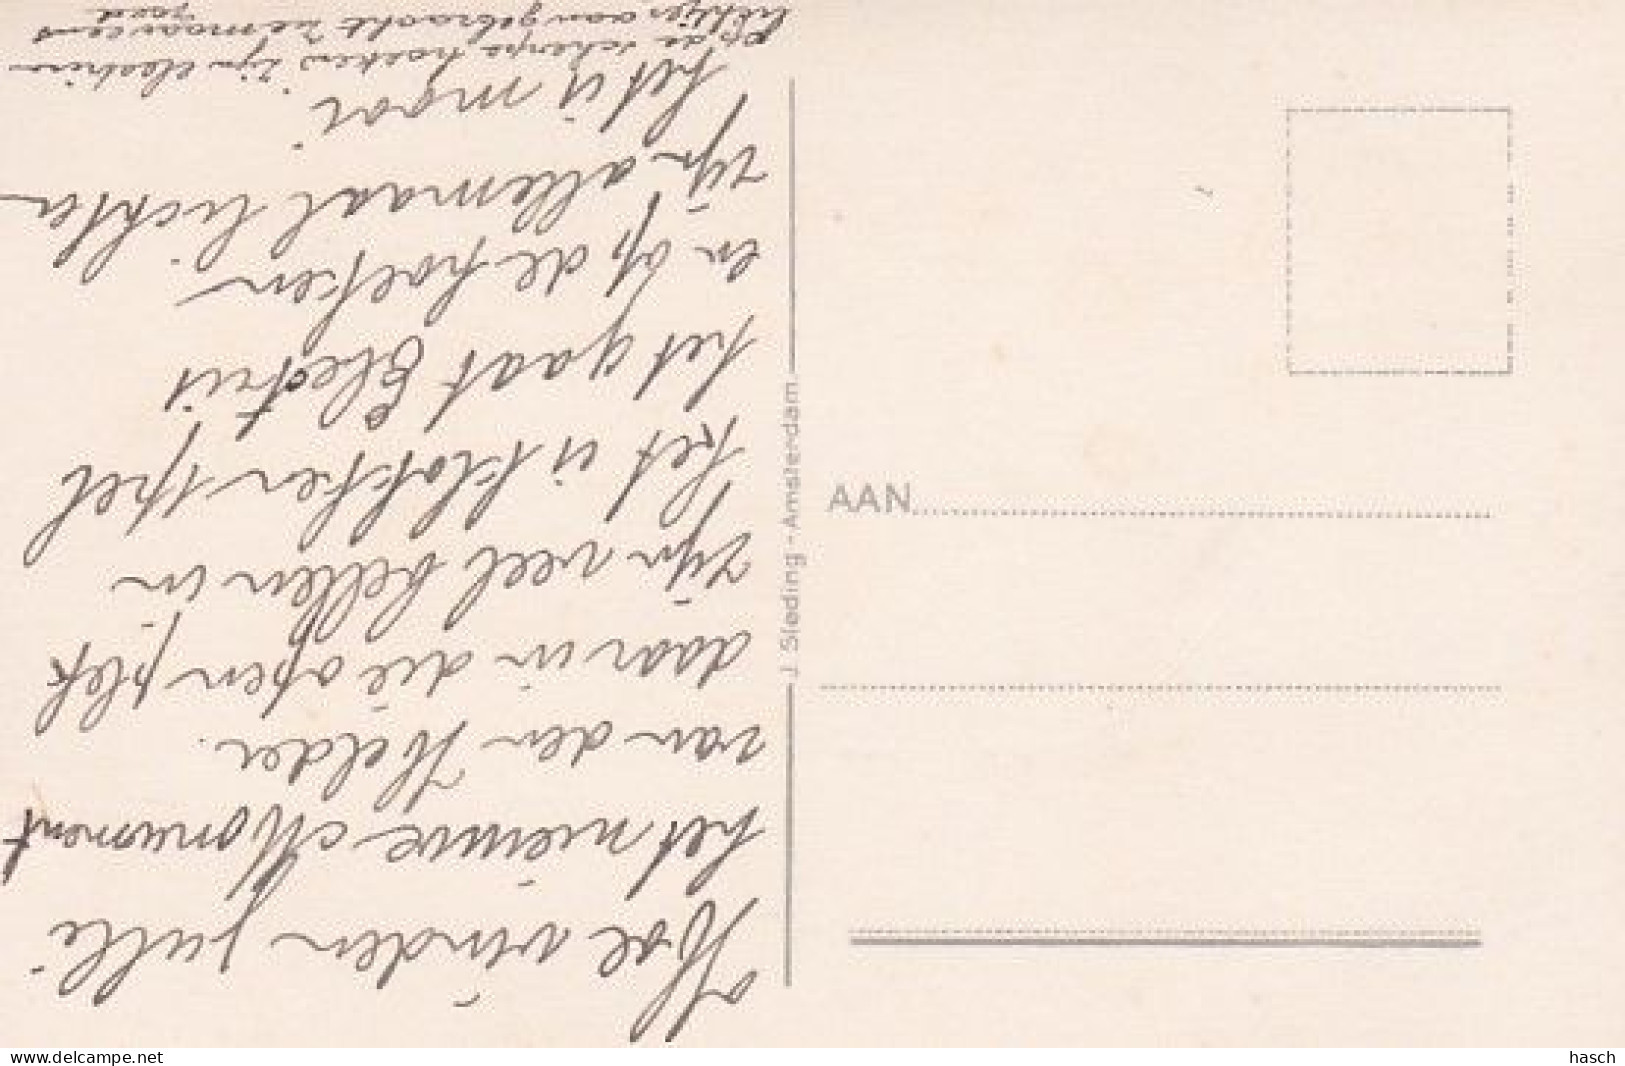 Hoe vinden julli
het nieuwe Monument
van den Helder.
daar in die open plek
zijn veel bellen in
Het is klokken spel
het gaat Electris
en op de hoeken
zijn allemaal lichten
Het is mooi
Op de scherpe hoeken zijn electrise
lichtjes aangebracht
J. Sleding - Amsterdam
AAN
www.delcampe.net
hasch